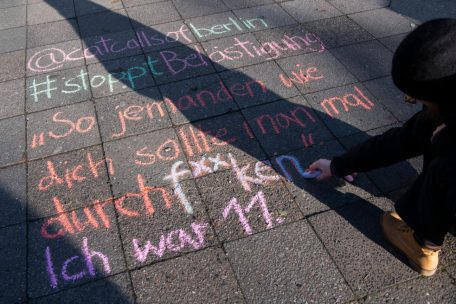 @catcallsofberlin
#stopptBelästigung
„So jemanden wie
dich sollte man mal
durchf**ken"
Ich war 11.